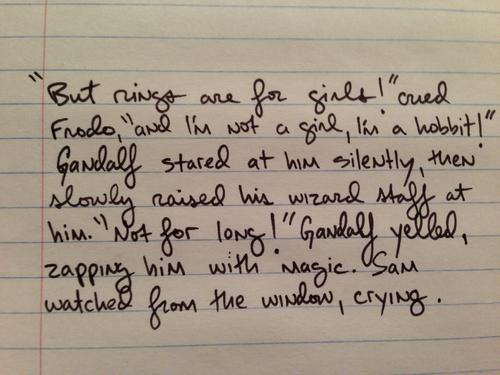 "But rings are for girls!" cried
Frodo, "and I'm not a girl, I'm a hobbit!"
Gandalf stared at him silently, then
slowly raised his wizard staff at
him. "Not for long!" Gandalf yelled,
zapping him with magic. Sam
watched from the window, crying.